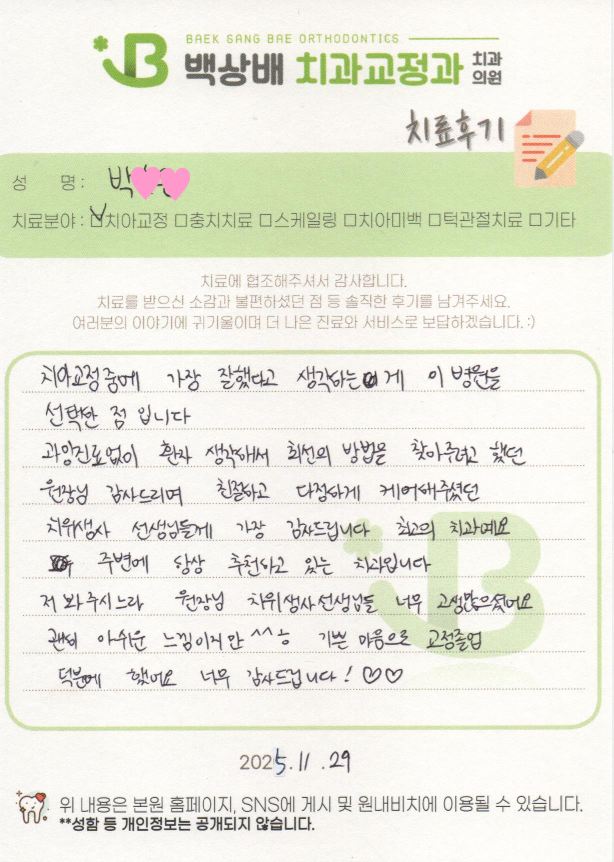 BAEK SANG BAE ORTHODONTICS
백상배 치과교정과 치과의원
치료후기
성 명 : 박
치료분야 : ☑치아교정 □충치치료 □스케일링 □치아미백 □턱관절치료 □기타
치료에 협조해주셔서 감사합니다.
치료를 받으신 소감과 불편하셨던 점 등 솔직한 후기를 남겨주세요.
여러분의 이야기에 귀기울이며 더 나은 진료와 서비스로 보답하겠습니다. :)
치아교정중에 가장 잘했다고 생각하는 게 이 병원을
선택한 점 입니다
과잉진료없이 환자 생각해서 최선의 방법을 찾아주려고 했던
원장님 감사드리며 친절하고 다정하게 케어해주셨던
치위생사 선생님들께 가장 감사드립니다 최고의 치과예요
주변에 항상 추천하고 있는 치과입니다
저 봐주시느라 원장님 치위생사선생님들 너무 고생많으셨어요
괜히 아쉬운 느낌이지만 ^^ 기쁜 마음으로 교정졸업
덕분에 했어요 너무 감사드립니다! ♡♡
2025.11.29
위 내용은 본원 홈페이지, SNS에 게시 및 원내비치에 이용될 수 있습니다.
**성함 등 개인정보는 공개되지 않습니다.